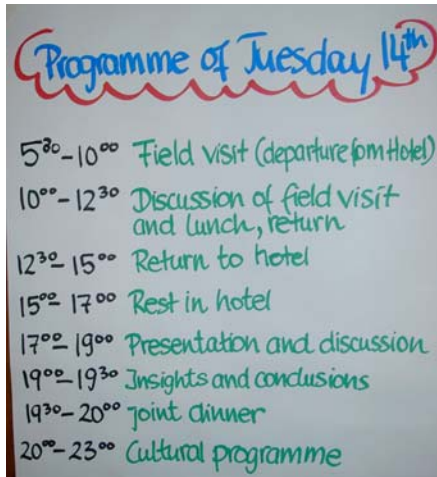 Programme of Tuesday 14th
5³⁰-10⁰⁰ Field visit (departure from Hotel)
10⁰⁰-12³⁰ Discussion of field visit
and lunch, return
12³⁰-15⁰⁰ Return to hotel
15⁰⁰-17⁰⁰ Rest in hotel
17⁰⁰-19⁰⁰ Presentation and discussion
19⁰⁰-19³⁰ Insights and conclusions
19³⁰-20⁰⁰ Joint dinner
20⁰⁰-23⁰⁰ Cultural programme